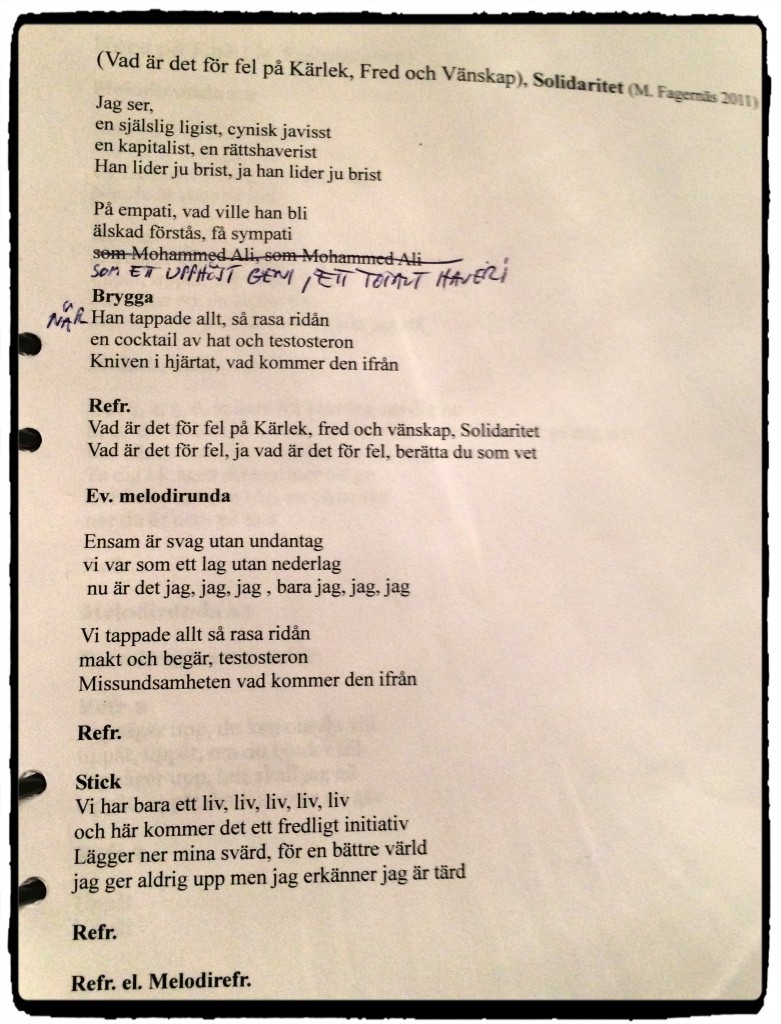 (Vad är det för fel på Kärlek, Fred och Vänskap), Solidaritet (M. Fagernäs 2011)
Jag ser,
en själslig ligist, cynisk javisst
en kapitalist, en rättshaverist
Han lider ju brist, ja han lider ju brist
På empati, vad ville han bli
älskad förstås, få sympati
som Mohammed Ali, som Mohammed Ali
SOM ETT UPPHÖJT GENI, ETT TOTALT HAVERI
Brygga
NÄR Han tappade allt, så rasa ridån
en cocktail av hat och testosteron
Kniven i hjärtat, vad kommer den ifrån
Refr.
Vad är det för fel på Kärlek, fred och vänskap, Solidaritet
Vad är det för fel, ja vad är det för fel, berätta du som vet
Ev. melodirunda
Ensam är svag utan undantag
vi var som ett lag utan nederlag
nu är det jag, jag, jag , bara jag, jag, jag
Vi tappade allt så rasa ridån
makt och begär, testosteron
Missundsamheten vad kommer den ifrån
Refr.
Stick
Vi har bara ett liv, liv, liv, liv, liv
och här kommer det ett fredligt initiativ
Lägger ner mina svärd, för en bättre värld
jag ger aldrig upp men jag erkänner jag är tärd
Refr.
Refr. el. Melodirefr.